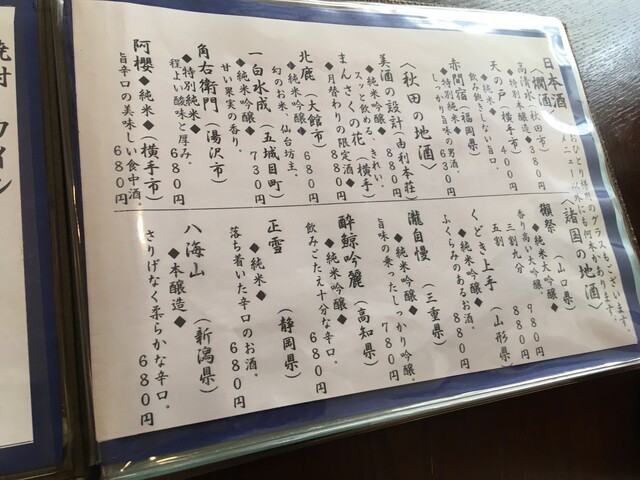 日本酒
〈燗酒〉
高清水（秋田市）
◆特別本醸造◆ 400円
天の戸（横手市）
◆純米◆
飲み飽きしない旨口。
赤間宿（福岡県）
◆特別純米◆ 630円
しっかり旨味の男酒
〈秋田の地酒〉
美酒の設計（由利本荘）
◆純米吟醸◆ 880円
スッと飲める、きれい。
まんさくの花（横手）
◆月替わりの限定酒◆ 880円
北鹿（大館市）
◆純米吟醸◆ 680円
幻のお米、仙台坊主。
一白水成（五城目町）
◆純米吟醸◆ 730円
甘い果実の香り。
角右衛門（湯沢市）
◆特別純米◆ 680円
程よい酸味と厚み。
阿櫻◆純米◆（横手市）
旨辛口の美味しい食中酒。
680円
〈諸国の地酒〉
獺祭（山口県）
◆純米大吟醸◆
香り高い大吟醸。
三割九分 980円
五割 880円
くどき上手（山形県）
◆純米吟醸◆
ふくらみのあるお酒。880円
瀧自慢（三重県）
◆純米吟醸◆ 780円
旨味の乗ったしっかり吟醸。
酔鯨吟麗（高知県）
◆純米吟醸◆ 680円
飲みごたえ十分な辛口。
正雪（静岡県）
◆純米◆
落ち着いた辛口のお酒。680円
八海山（新潟県）
◆本醸造◆
さりげなく柔らかな辛口。
680円